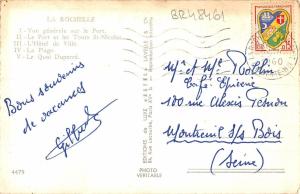 LA ROCHELLE
I - Vue générale sur le Port.
II - Le Port et les Tours St-Nicolas
III - L'Hôtel de Ville.
IV - La Plage.
V - Le Quai Duperré.
BR48461
Bons souvenirs
de vacances
M. et Mme
Café Epicerie
100 rue Alexis
Montreuil s/s Bois
(Seine)
4479
PHOTO
VERITABLE
EDITIONS DE LUXE